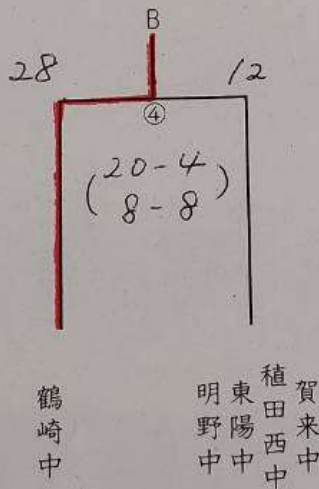 B
28 12
④
(20-4
8-8)
鶴崎中
明野中
東陽中
稙田西中
賀来中